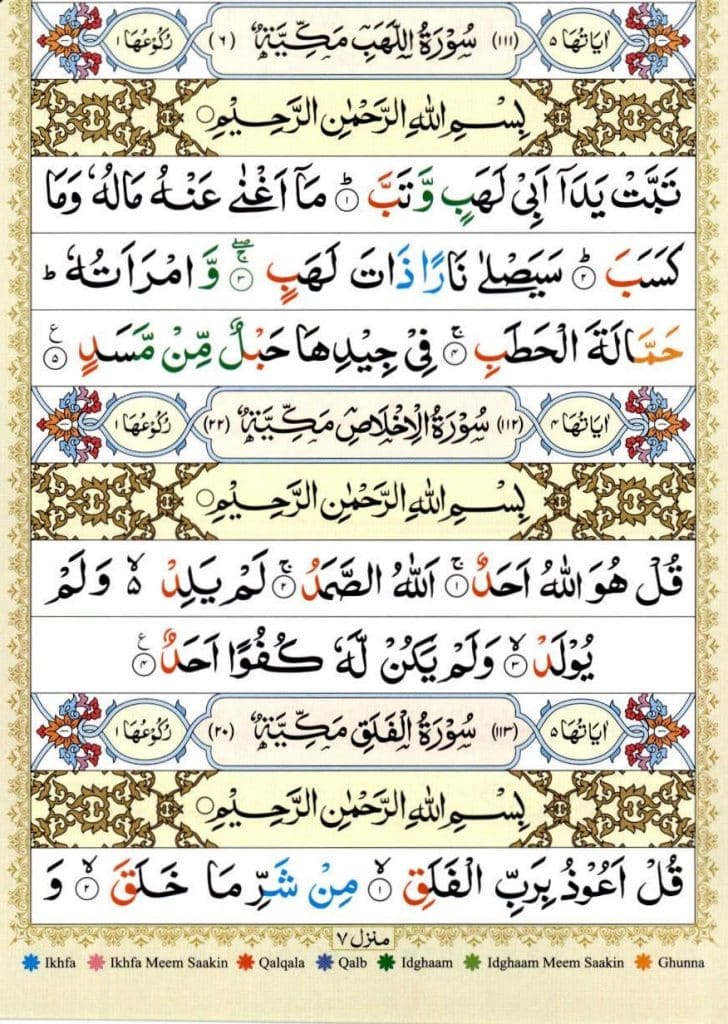 اٰيَاتُهَا ٥ (١١١) سُوْرَةُ اللَّهَبِ مَكِّيَّةٌ (٦) رُكُوْعُهَا ١
بِسْمِ اللهِ الرَّحْمٰنِ الرَّحِيْمِ
تَبَّتْ يَدَآ اَبِيْ لَهَبٍ وَّتَبَّ ؕ﴿١﴾ مَاۤ اَغْنٰى عَنْهُ مَالُهٗ وَمَا
كَسَبَ ؕ﴿٢﴾ سَيَصْلٰى نَارًا ذَاتَ لَهَبٍ ۖۚ﴿٣﴾ وَّ امْرَاَتُهٗ ؕ
حَمَّالَةَ الْحَطَبِ ۚ﴿٤﴾ فِيْ جِيْدِهَا حَبْلٌ مِّنْ مَّسَدٍ ﴿٥﴾ ع
اٰيَاتُهَا ٤ (١١٢) سُوْرَةُ الْاِخْلَاصِ مَكِّيَّةٌ (٢٢) رُكُوْعُهَا ١
بِسْمِ اللهِ الرَّحْمٰنِ الرَّحِيْمِ
قُلْ هُوَ اللهُ اَحَدٌ ۚ﴿١﴾ اَللهُ الصَّمَدُ ۚ﴿٢﴾ لَمْ يَلِدْ ۙ۬ وَلَمْ
يُوْلَدْ ۙ﴿٣﴾ وَلَمْ يَكُنْ لَّهٗ كُفُوًا اَحَدٌ ﴿٤﴾ ع
اٰيَاتُهَا ٥ (١١٣) سُوْرَةُ الْفَلَقِ مَكِّيَّةٌ (٢٠) رُكُوْعُهَا ١
بِسْمِ اللهِ الرَّحْمٰنِ الرَّحِيْمِ
قُلْ اَعُوْذُ بِرَبِّ الْفَلَقِ ۙ﴿١﴾ مِنْ شَرِّ مَا خَلَقَ ۙ﴿٢﴾ وَ
منزل ٧
Ikhfa Ikhfa Meem Saakin Qalqala Qalb Idghaam Idghaam Meem Saakin Ghunna